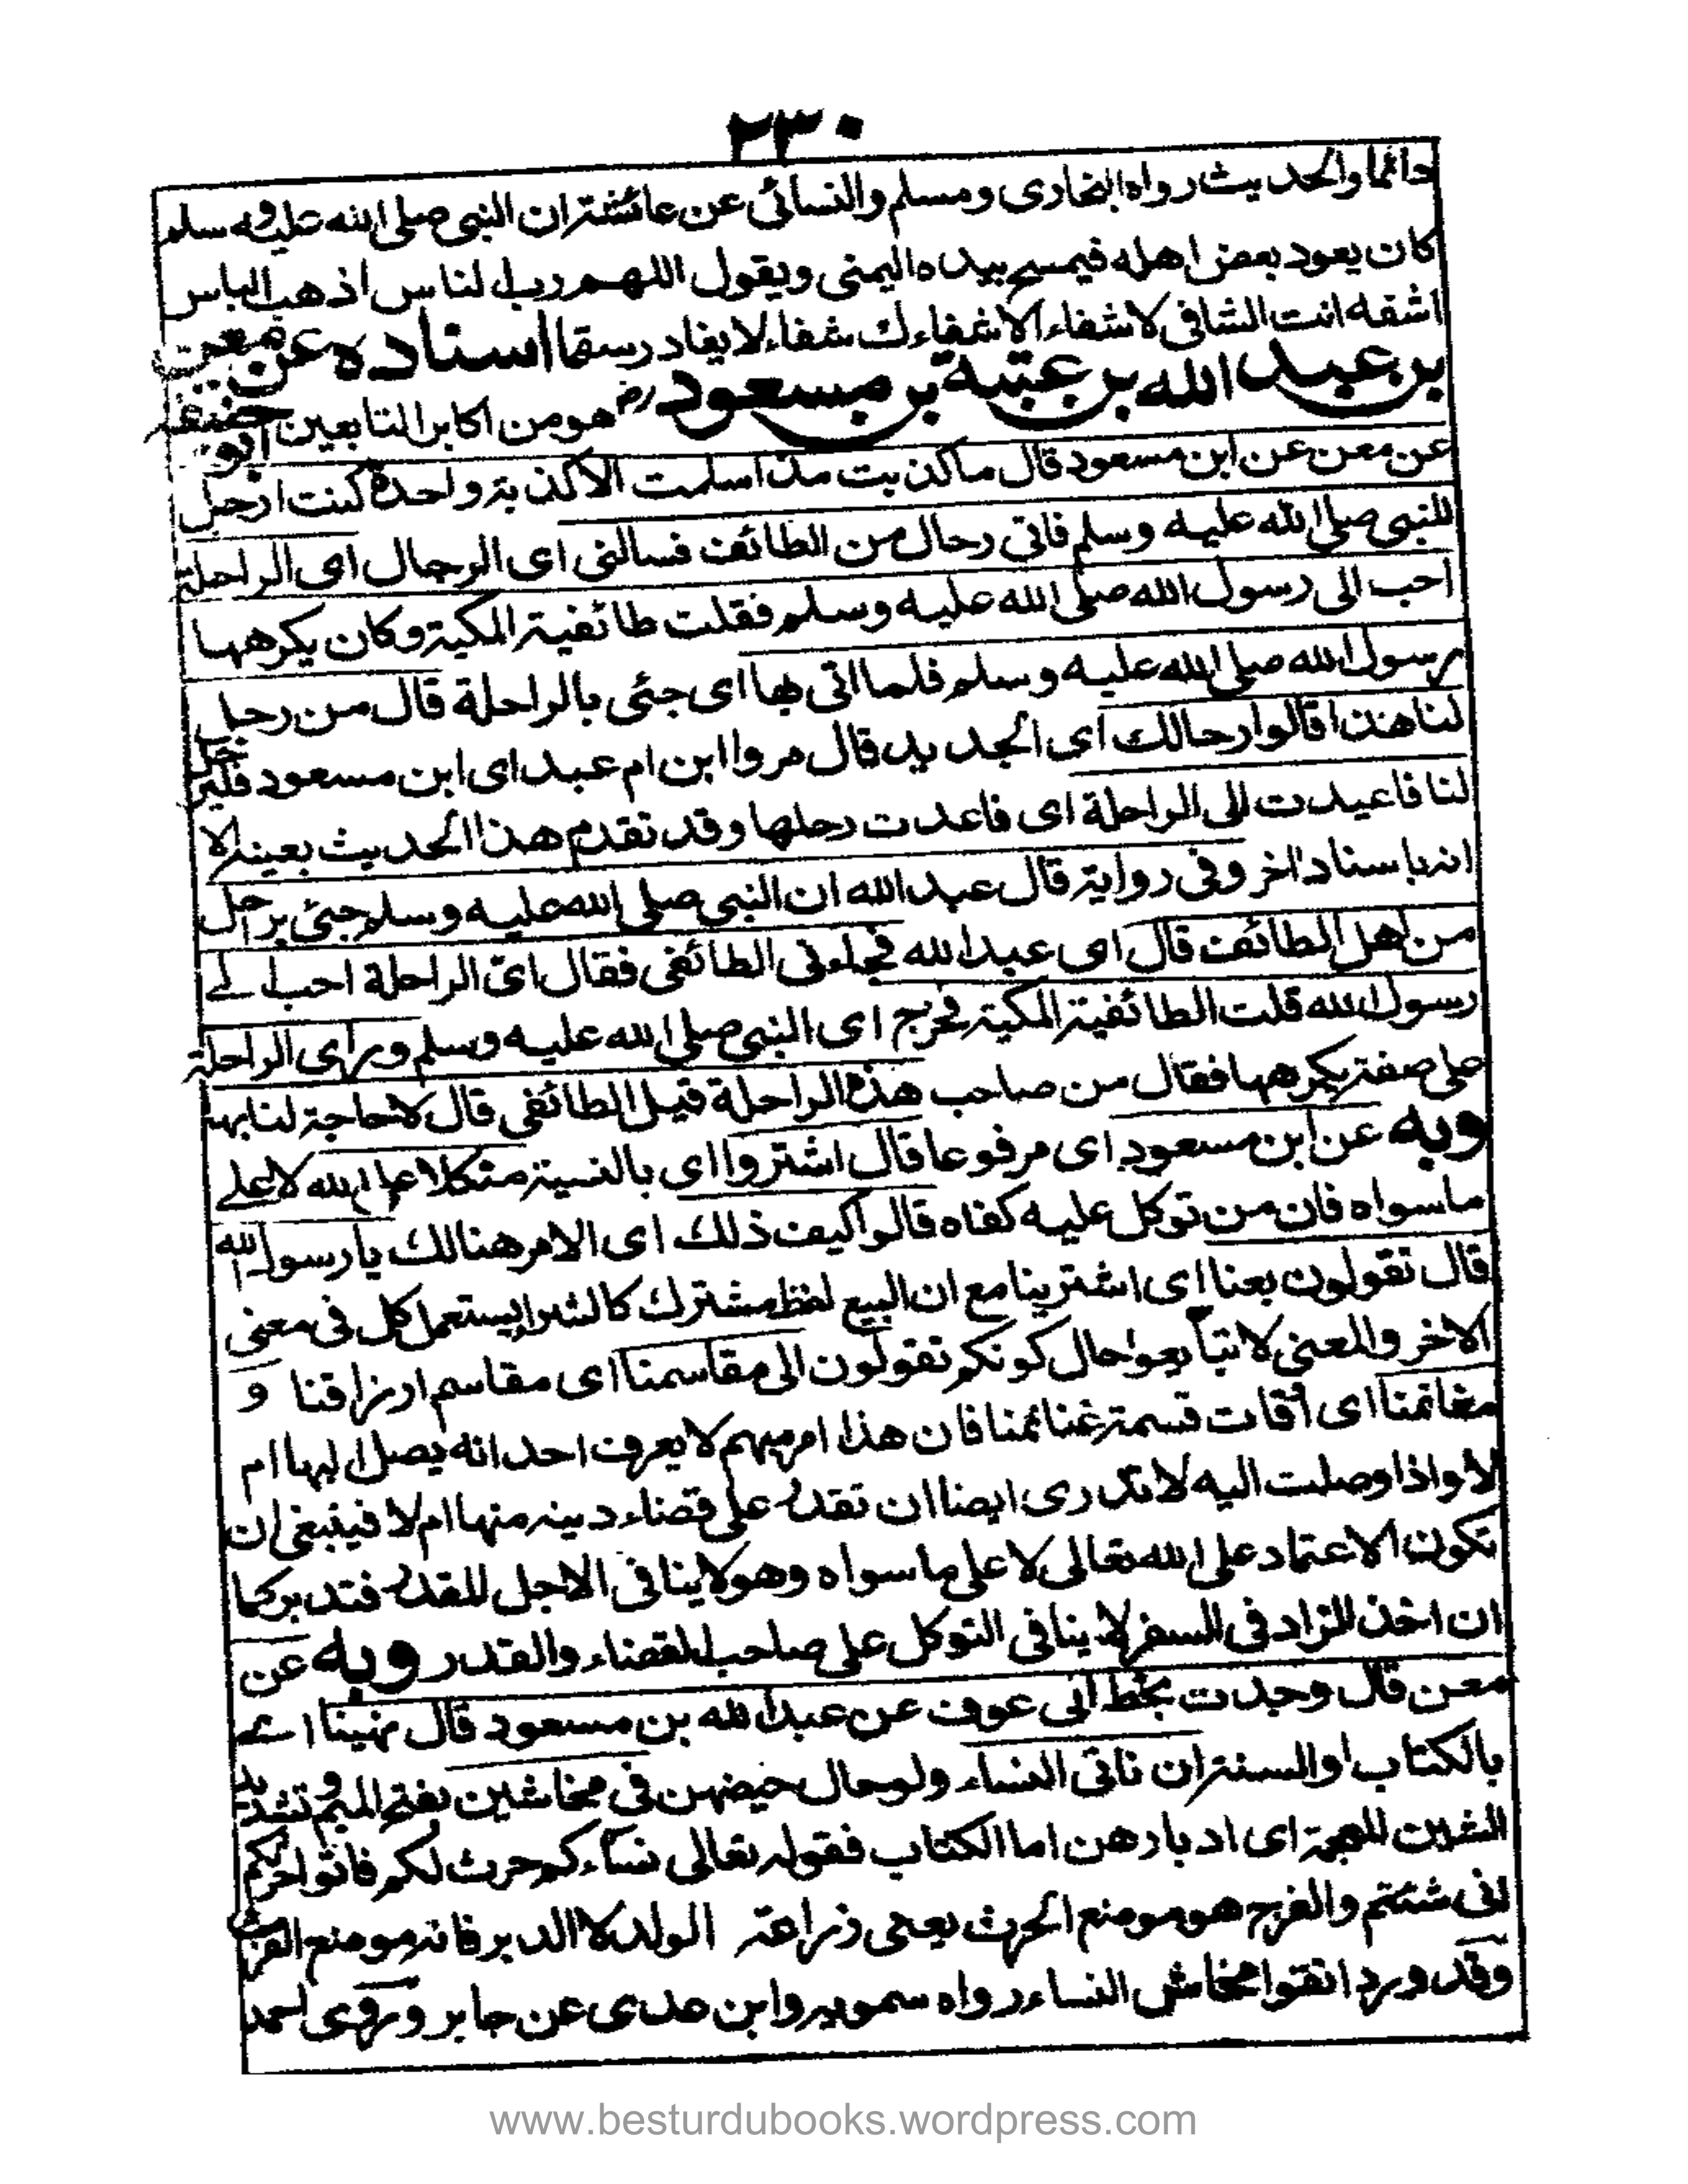 ٢٣٠
دائما والحديث رواه البخاري ومسلم والنسائي عن عائشة ان النبي صلى الله عليه وسلم
كان يعود بعض اهله فيمسح بيده اليمنى ويقول اللهم رب الناس اذهب الباس
اشفه انت الشافي لا شفاء الا شفاءك شفاء لا يغادر سقما اسناده عن معن
بن عبد الله بن عتبة بن مسعود رض هو من اكابر التابعين ابو حنيفة
عن معن عن ابن مسعود قال ما كذبت مذ اسلمت الا كذبة واحدة كنت ارحل
للنبي صلى الله عليه وسلم فاتى رحال من الطائف فسالني اى الرحال اى الراحلة
احب الى رسول الله صلى الله عليه وسلم فقلت طائفية المكية وكان يكرهها
رسول الله صلى الله عليه وسلم فلما اتى بها اى جئى بالراحلة قال من رحل
لنا هذا قالوا رحالك اى الجديد قال مروا ابن ام عبد اى ابن مسعود فليرحل
لنا فاعيدت الى الراحلة اى فاعدت رحلها وقد تقدم هذا الحديث بعينه الا
انه باسناد اخر وفي رواية قال عبد الله ان النبي صلى الله عليه وسلم جئ برحل
من اهل الطائف قال اى عبد الله فجاءنى الطائفى فقال اىّ الراحلة احب الے
رسول الله قلت الطائفية المكية فخرج اى النبي صلى الله عليه وسلم وراى الراحلة
على صفة يكرهها فقال من صاحب هذه الراحلة قيل الطائفى قال لا حاجة لنا بها
وبه عن ابن مسعود اى مرفوعا قال اشتروا اى بالنسية متكلا على الله لا على
ما سواه فان من توكل عليه كفاه قالوا كيف ذلك اى الامر هنالك يا رسول الله
قال تقولون بعنا اى اشترينا مع ان البيع لفظ مشترك كالشرا يستعمل كل فى معنى
الاخر والمعنى لا تبايعوا حال كونكم تقولون الى مقاسمنا اى مقاسم ارزاقنا و
مغانمنا اى اوقات قسمة غنائمنا فان هذا امر مبهم لا يعرف احد انه يصل اليها ام
لا واذا وصلت اليه لا تدرى ايضا ان تقدر على قضاء دينه منها ام لا فينبغى ان
تكون الاعتماد على الله تعالى لا على ما سواه وهو لا ينافى الاجل المقدر فتدبر كما
ان اخذ الزاد فى السفر لا ينافى التوكل على صاحب القضاء والقدر وبه عن
معن قال وجدت بخط ابى عوف عن عبد الله بن مسعود قال نهينا اے
بالكتاب او السنة ان ناتى النساء ولو حال حيضهن فى مخاشين بفتح الميم وتشديد
الشين المعجمة اى ادبارهن اما الكتاب فقوله تعالى نساءكم حرث لكم فاتوا حرثكم
انى شئتم والفرج هو موضع الحرث يعنى زراعة الولد لا الدبر فانه موضع الفرث
وقد ورد اتقوا مخاش النساء رواه سمويه وابن عدى عن جابر وروى احمد
www.besturdubooks.wordpress.com